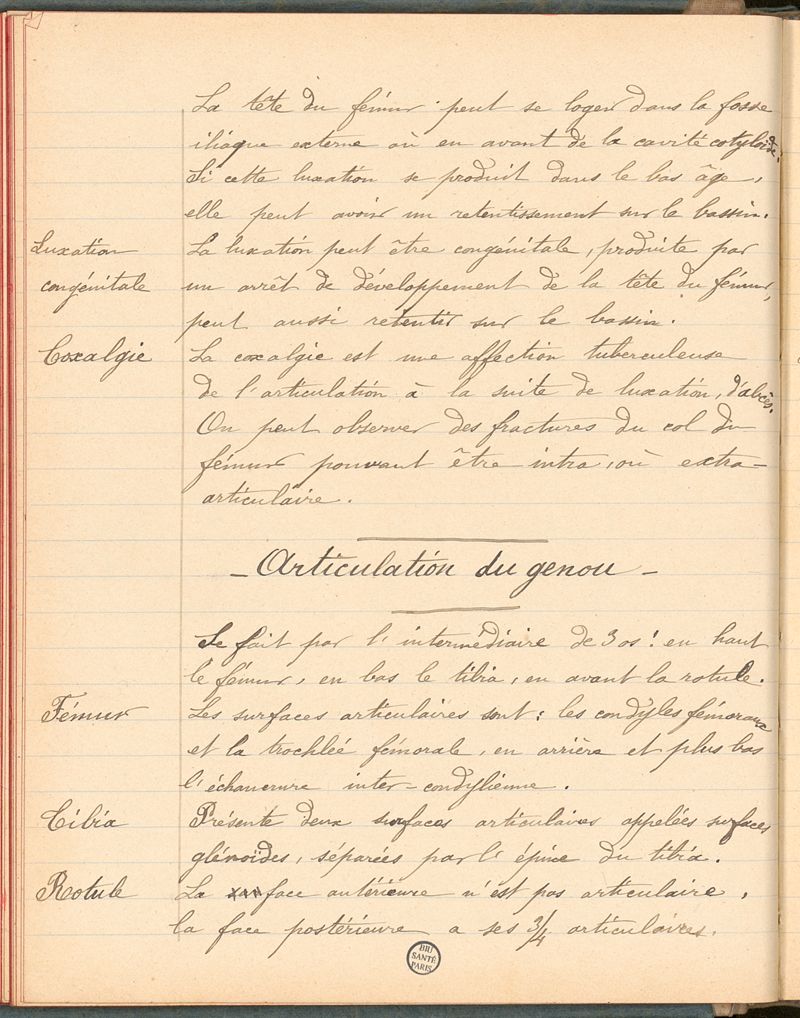 La tête du fémur peut se loger dans la fosse
iliaque externe où en avant de la cavité cotyloïde.
Si cette luxation se produit dans le bas âge,
elle peut avoir un retentissement sur le bassin.
Luxation La luxation peut être congénitale, produite par
congénitale un arrêt de développement de la tête du fémur,
peut aussi retentir sur le bassin.
Coxalgie La coxalgie est une affection tuberculeuse
de l'articulation à la suite de luxation, d'abcès.
On peut observer des fractures du col du
fémur pouvant être intra, où extra-
articulaire.
- Articulation du genou -
Se fait par l'intermédiaire de 3 os! en haut
le fémur, en bas le tibia, en avant la rotule.
Fémur Les surfaces articulaires sont: les condyles fémoraux
et la trochlée fémorale, en arrière et plus bas
l'échancrure inter-condylienne.
Tibia Présente deux surfaces articulaires appelées surfaces
glénoïdes, séparées par l'épine du tibia.
Rotule La face antérieure n'est pas articulaire,
la face postérieure a ses 3/4 articulaires.
BIU
SANTÉ
PARIS